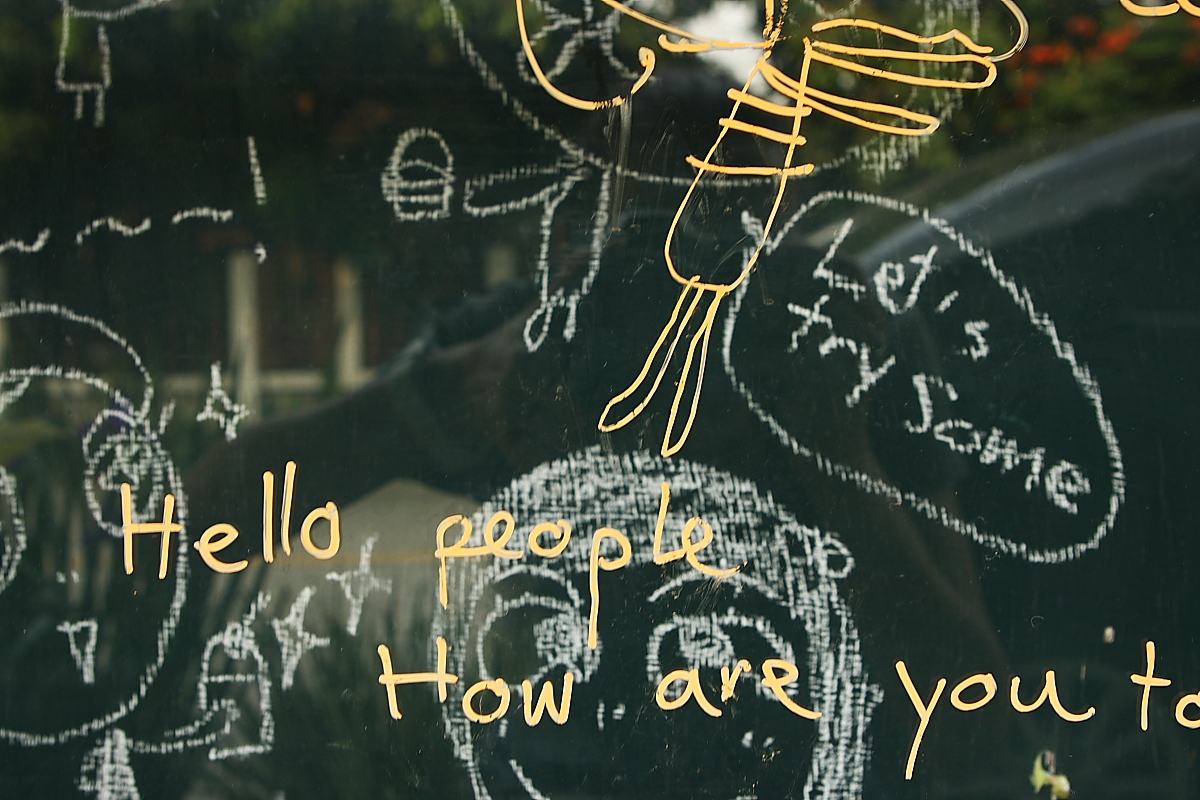 Let's
xoxy Some
Hello people
How are you to